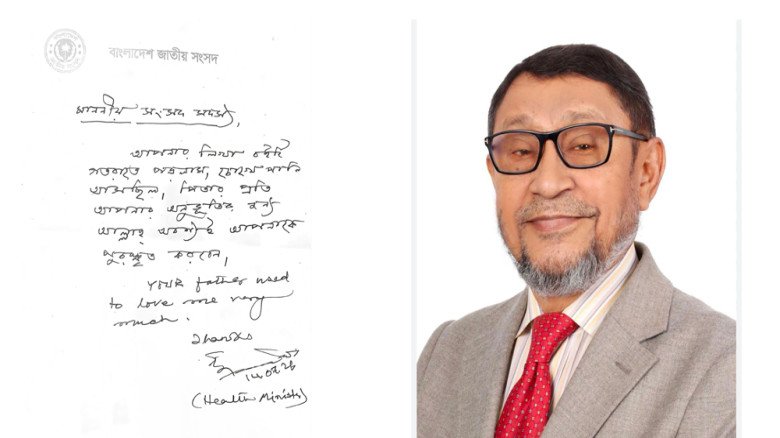 বাংলাদেশ জাতীয় সংসদ
মাননীয় সংসদ সদস্য,
আপনার লিখা বইটি
গতরাতে পড়লাম, চোখে পানি
আসছিল, পিতার প্রতি
আপনার অনুভূতির জন্য
আল্লাহ অবশ্যই আপনাকে
পুরস্কৃত করবেন,
Your father used
to love me very
much.
Thanks
(Health Minister)